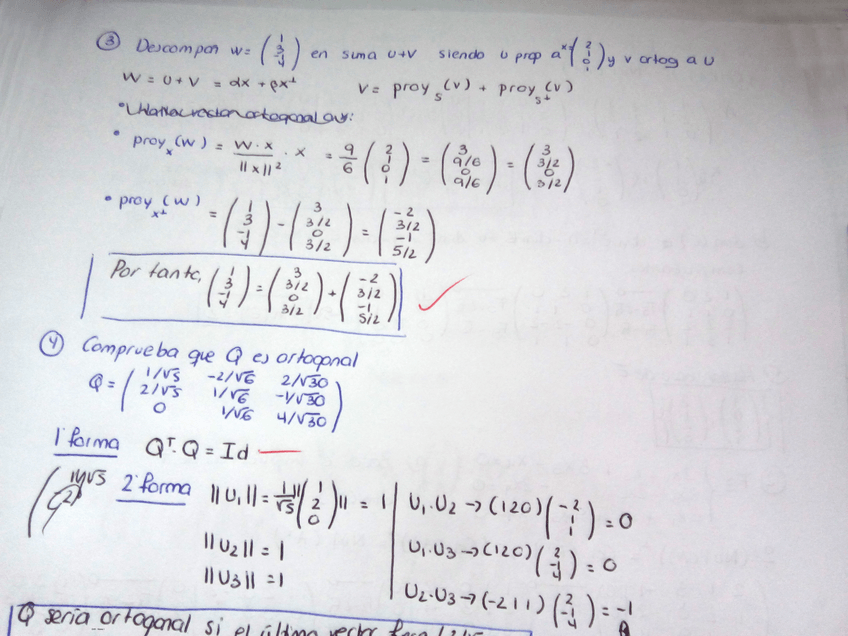 ③ Descompon w = (1 3 -1 4) en suma u+v siendo u prop a x=(2 1 0 1) y v ortog a u
W = U + V = αx + βx⊥ V = proy_S(v) + proy_S⊥(v)
• proy_x(w) = W·x / ||x||² · x = 9/6 (2 1 0 1) = (3 9/6 0 9/6) = (3 3/2 0 3/2)
• proy_x⊥(w) = (1 3 -1 4) - (3 3/2 0 3/2) = (-2 3/2 -1 5/2)
Por tanto, (1 3 -1 4) = (3 3/2 0 3/2) + (-2 3/2 -1 5/2)
④ Comprueba que Q es ortogonal
Q = (1/√5 -2/√6 2/√30
2/√5 1/√6 -1/√30
0 1/√6 4/√30)
1ª forma Qᵀ·Q = Id
2ª forma ||U1|| = 1/√5 ||(1 2 0)|| = 1 U1·U2 → (1 2 0)(-2 1 1) = 0
||U2|| = 1 U1·U3 → (1 2 0)(2 -1 4) = 0
||U3|| = 1 U2·U3 → (-2 1 1)(2 -1 4) = -1
Q sería ortogonal si el último vector